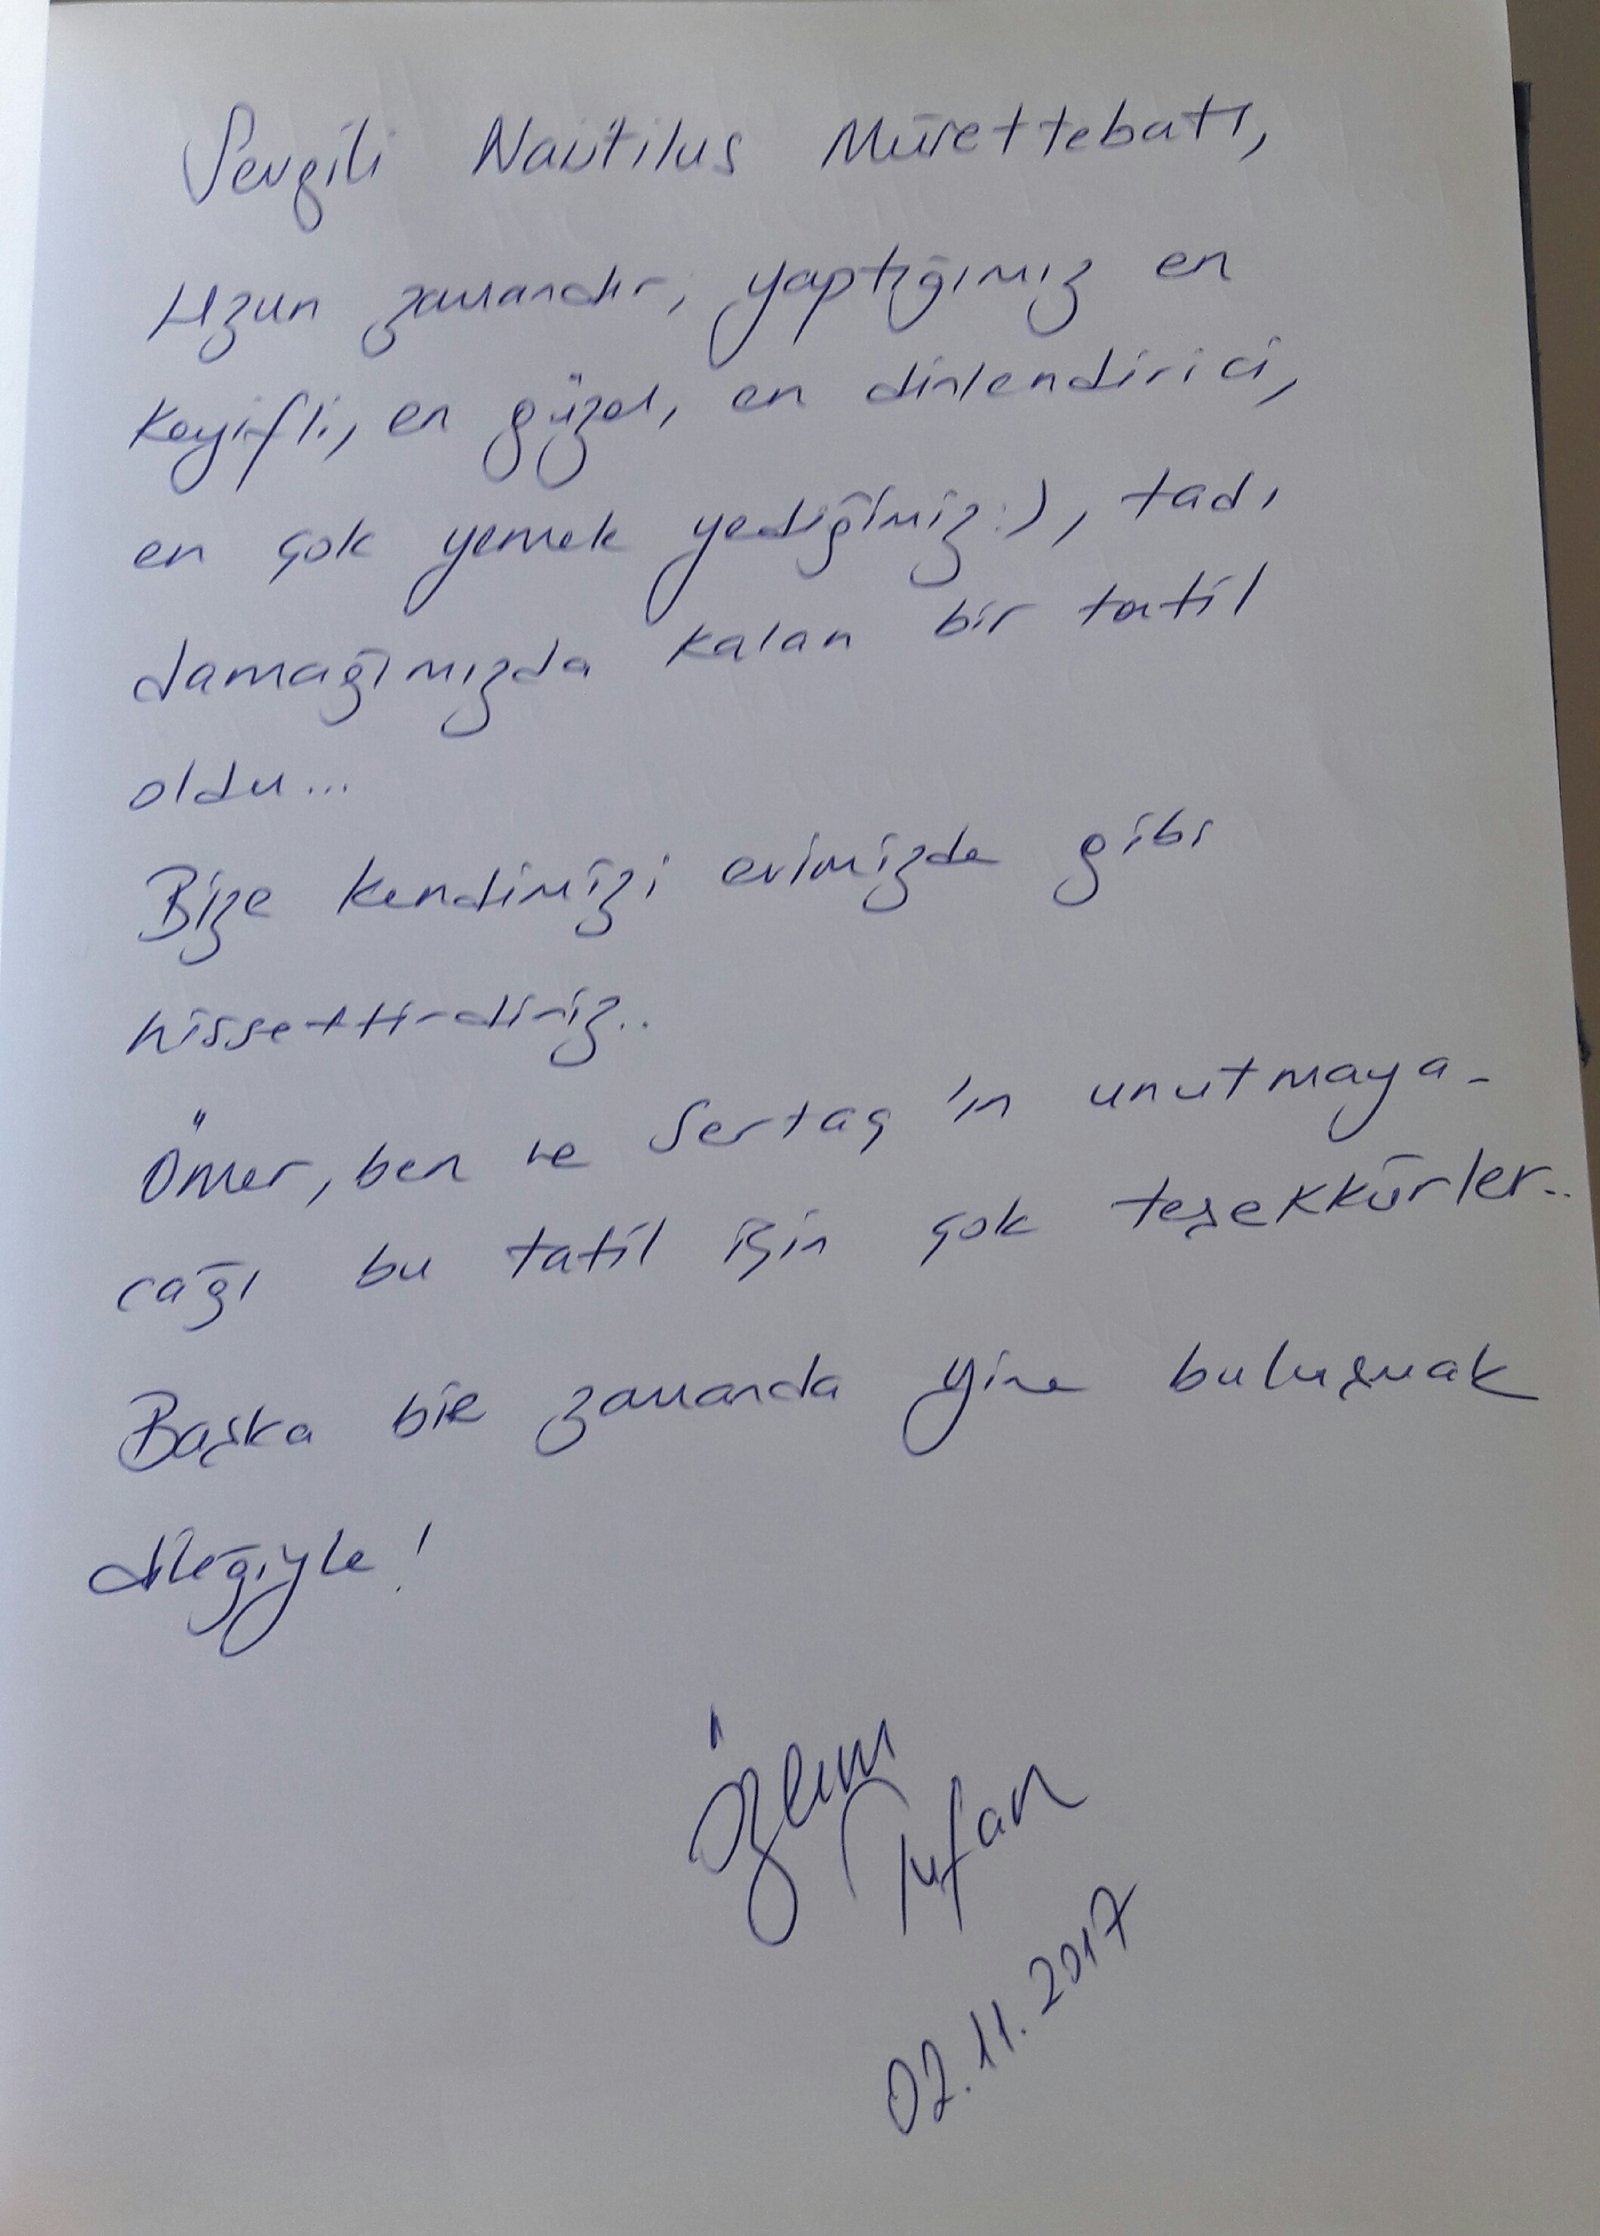 Sevgili Nautilus Mürettebatı,
Uzun zamandır, yaptığımız en
keyifli, en güzel, en dinlendirici,
en çok yemek yediğimiz:), tadı
damağımızda kalan bir tatil
oldu...
Bize kendimizi evimizde gibi
hissettirdiniz..
Ömer, ben ve Sertaç'ın unutmaya-
cağı bu tatil için çok teşekkürler..
Başka bir zamanda yine buluşmak
dileğiyle!
Özlem
Tufan
02.11.2017